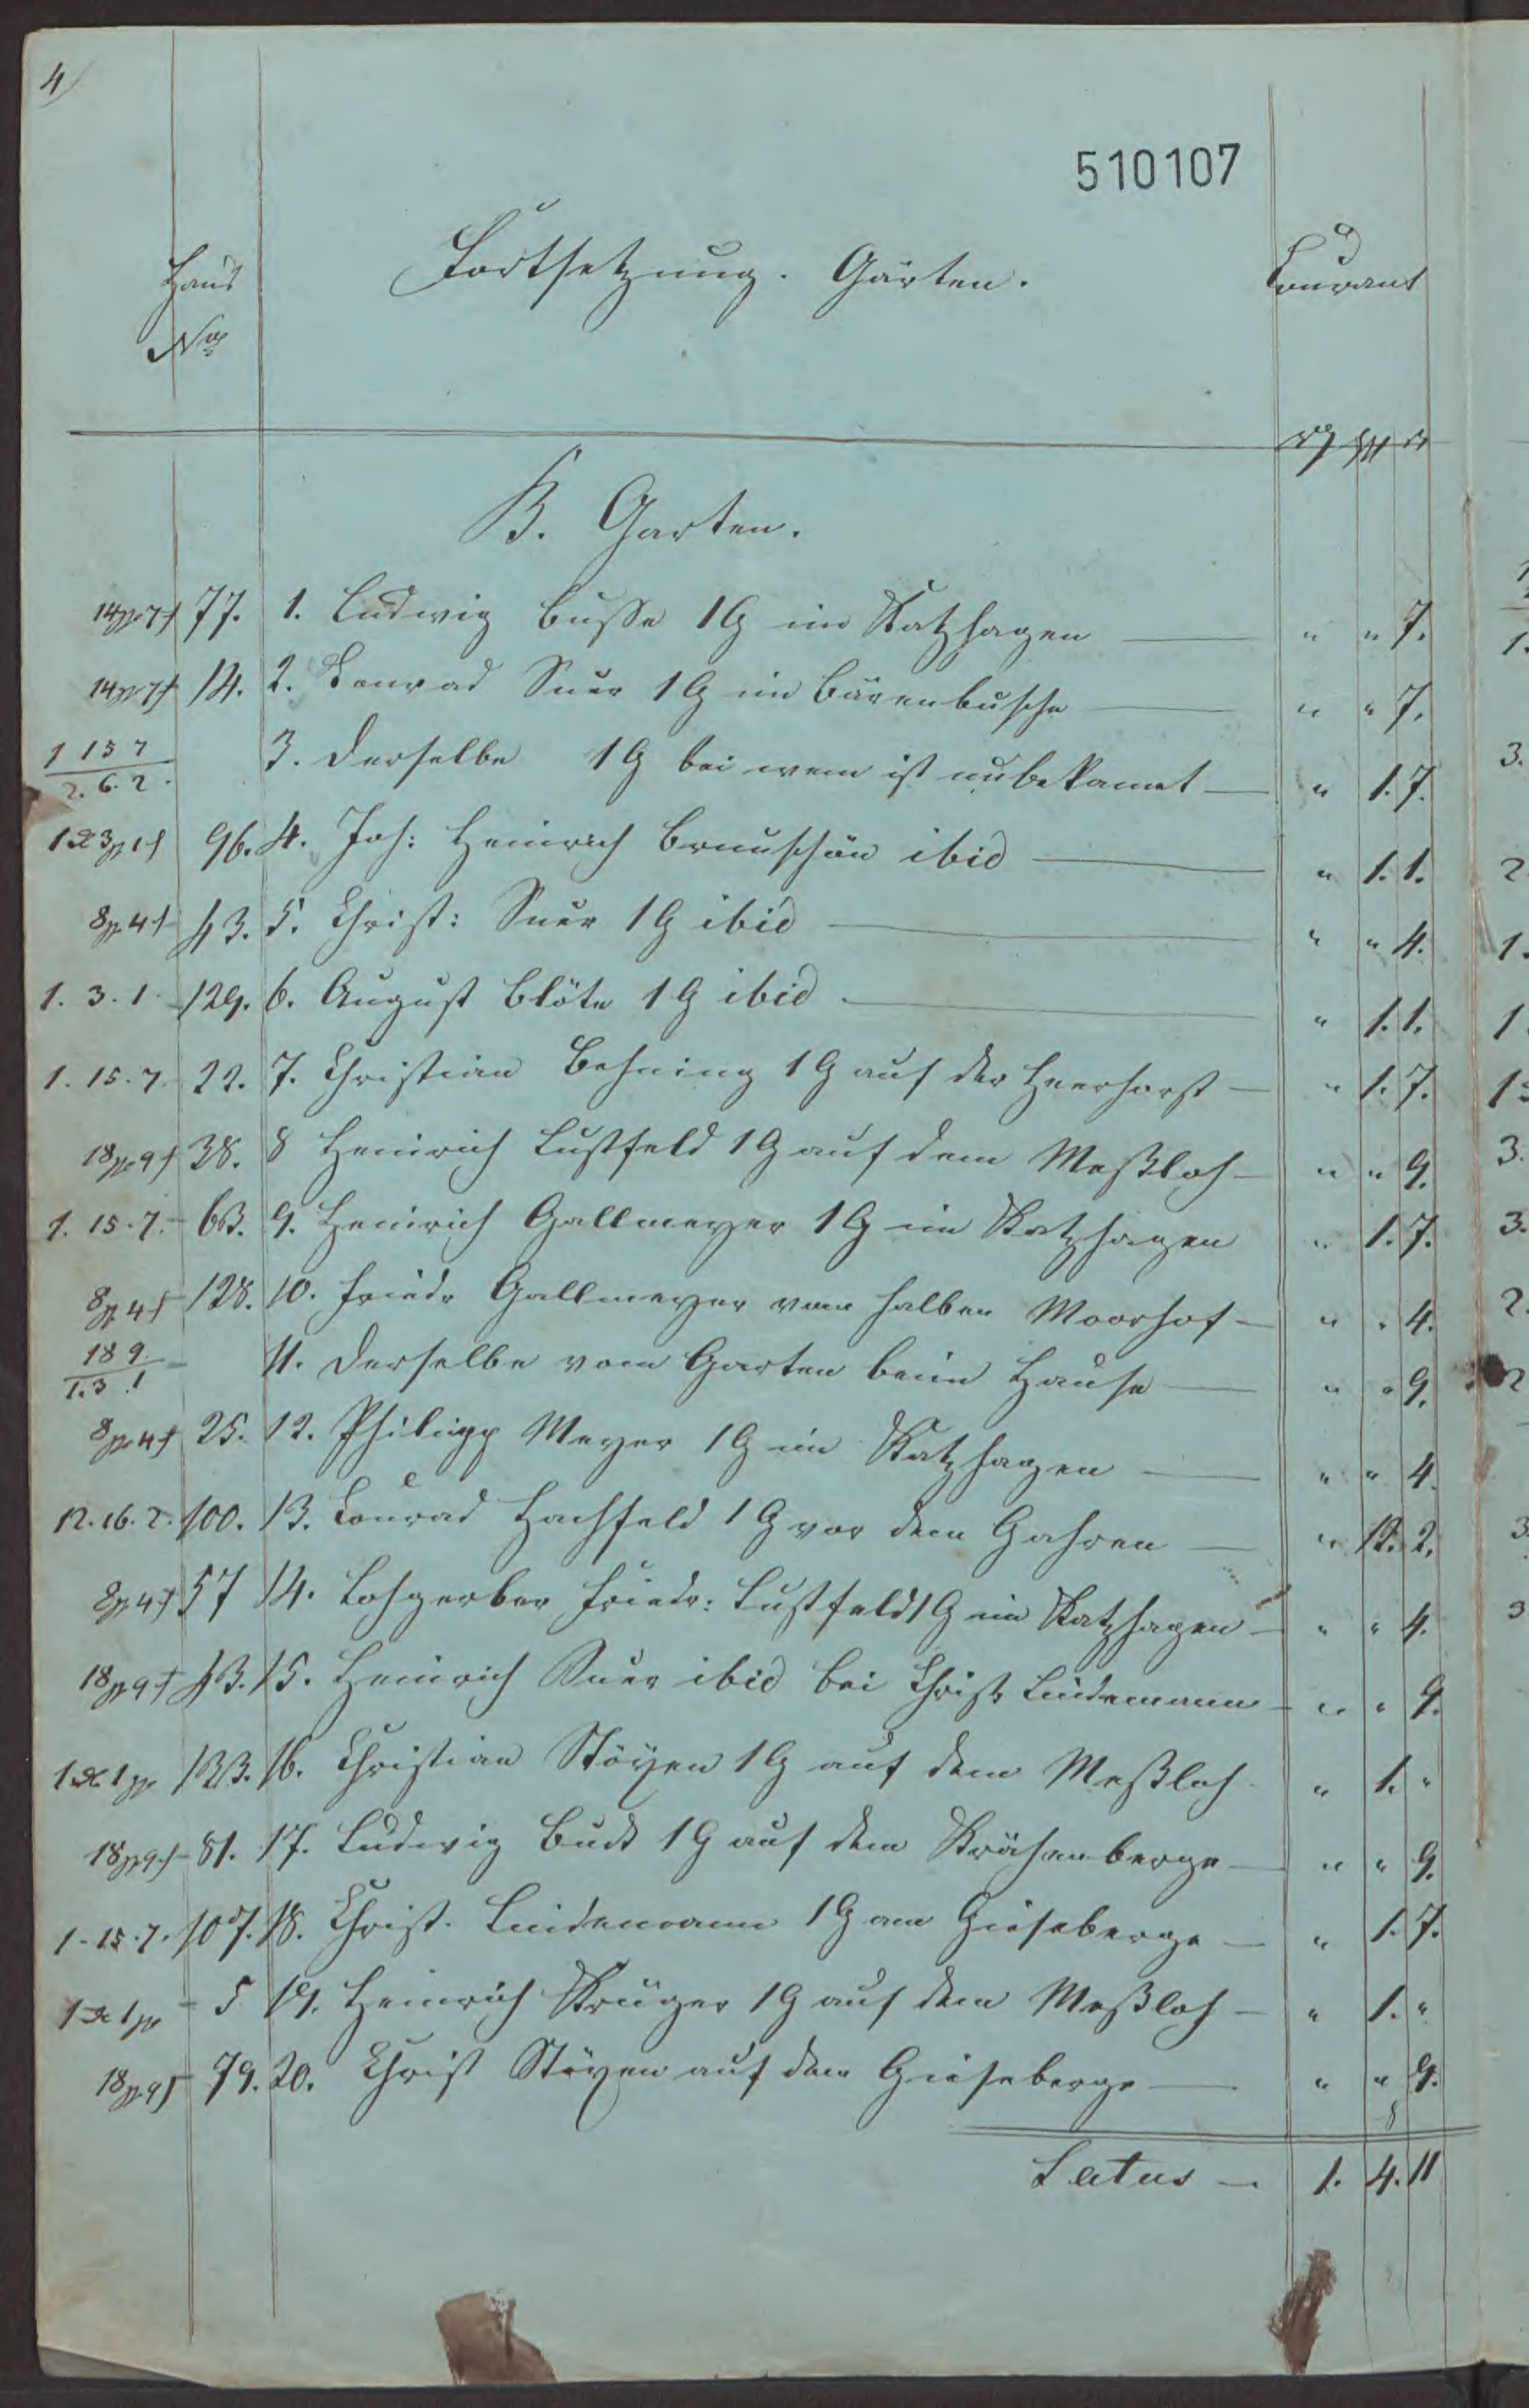 4
510107
Haus
No
Fortsetzung. Gärten.
Courant
B. Garten.
77. 1. Ludwig Busse 1 G im Katzhagen — " " 7.
14. 2. Conrad Suer 1 G im Bärenbusche — " " 7.
1 15 7 3. Derselbe 1 G bei wem ist unbekannt — " 1. 7.
2. 6. 2.
96. 4. Joh: Heinrich Brunschön ibid — " 1. 1.
43. 5. Christ: Suer 1 G ibid — " " 4.
1. 3. 1. 129. 6. August Blöte 1 G ibid — " 1. 1.
1. 15. 7. 22. 7. Christian Behning 1 G auf der Heerhorst — " 1. 7.
38. 8 Heinrich Lustfeld 1 G auf dem Meßloh — " " 9.
1. 15. 7. 63. 9. Heinrich Gallmeyer 1 G im Katzhagen " 1. 7.
128. 10. Friedr Gallmeyer vom halben Moorhof — " " 4.
18 9 11. Derselbe vom Garten beim Hause — " " 9.
1. 3. 1
25. 12. Philipp Meyer 1 G im Katzhagen — " " 4.
12. 16. 2. 100. 13. Conrad Hachfeld 1 G vor dem Gahren — " 12. 2.
57 14. Lohgerber Friedr: Lustfeld 1 G im Katzhagen — " " 4.
43. 15. Heinrich Suer ibid bei Christ Lindemann — " " 9.
133. 16. Christian Stöxen 1 G auf dem Meßloh " 1. "
81. 17. Ludwig Buck 1 G auf dem Krähenberge — " " 9.
1. 15. 7. 107. 18. Christ. Lindemann 1 G am Gieseberge — " 1. 7.
5 19. Heinrich Krüger 1 G auf dem Meßloh — " 1. "
79. 20. Christ Stöxen auf dem Gieseberge — " " 9.
Latus — 1. 4. 11